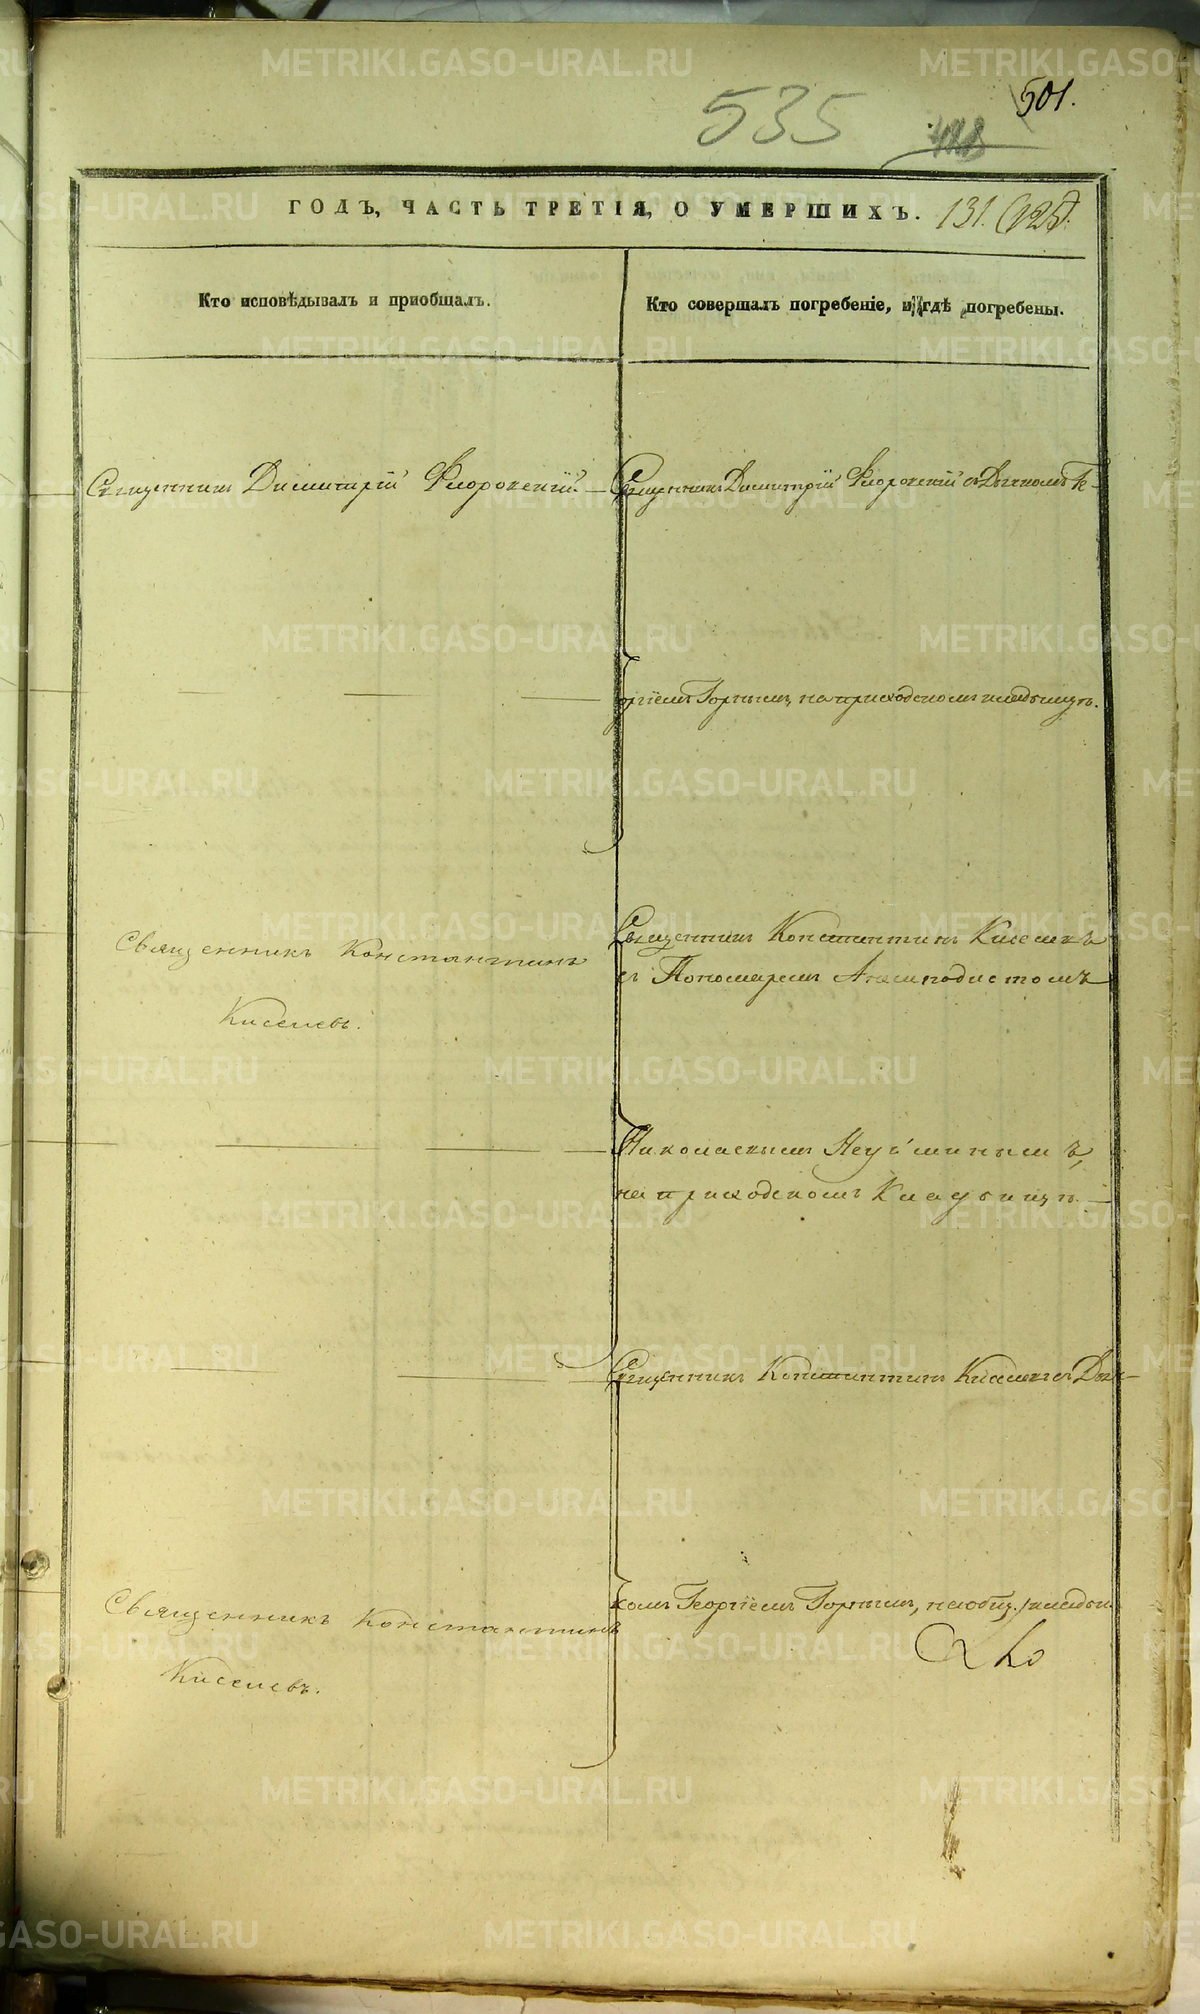 501.
535
ГОДЪ, ЧАСТЬ ТРЕТІЯ, О УМЕРШИХЪ. 131.
Кто исповѣдывалъ и пріобщалъ.
Кто совершалъ погребеніе, и гдѣ погребены.
Священникъ Димитрій Флоровскій.
Священникъ Димитрій Флоровскій съ Дьячкомъ Ге-
оргіемъ Горнымъ, на приходскомъ кладбищѣ.
Священникъ Константинъ
Киселевъ.
Священникъ Константинъ Киселевъ
съ Пономаремъ Анемподистомъ
Николаевымъ Неуйминымъ,
на приходскомъ Кладбищѣ.
Священникъ Константинъ Киселевъ съ Дьяч-
комъ Георгіемъ Горнымъ, на общ. кладби
Священникъ Константинъ
Киселевъ.
METRIKI.GASO-URAL.RU